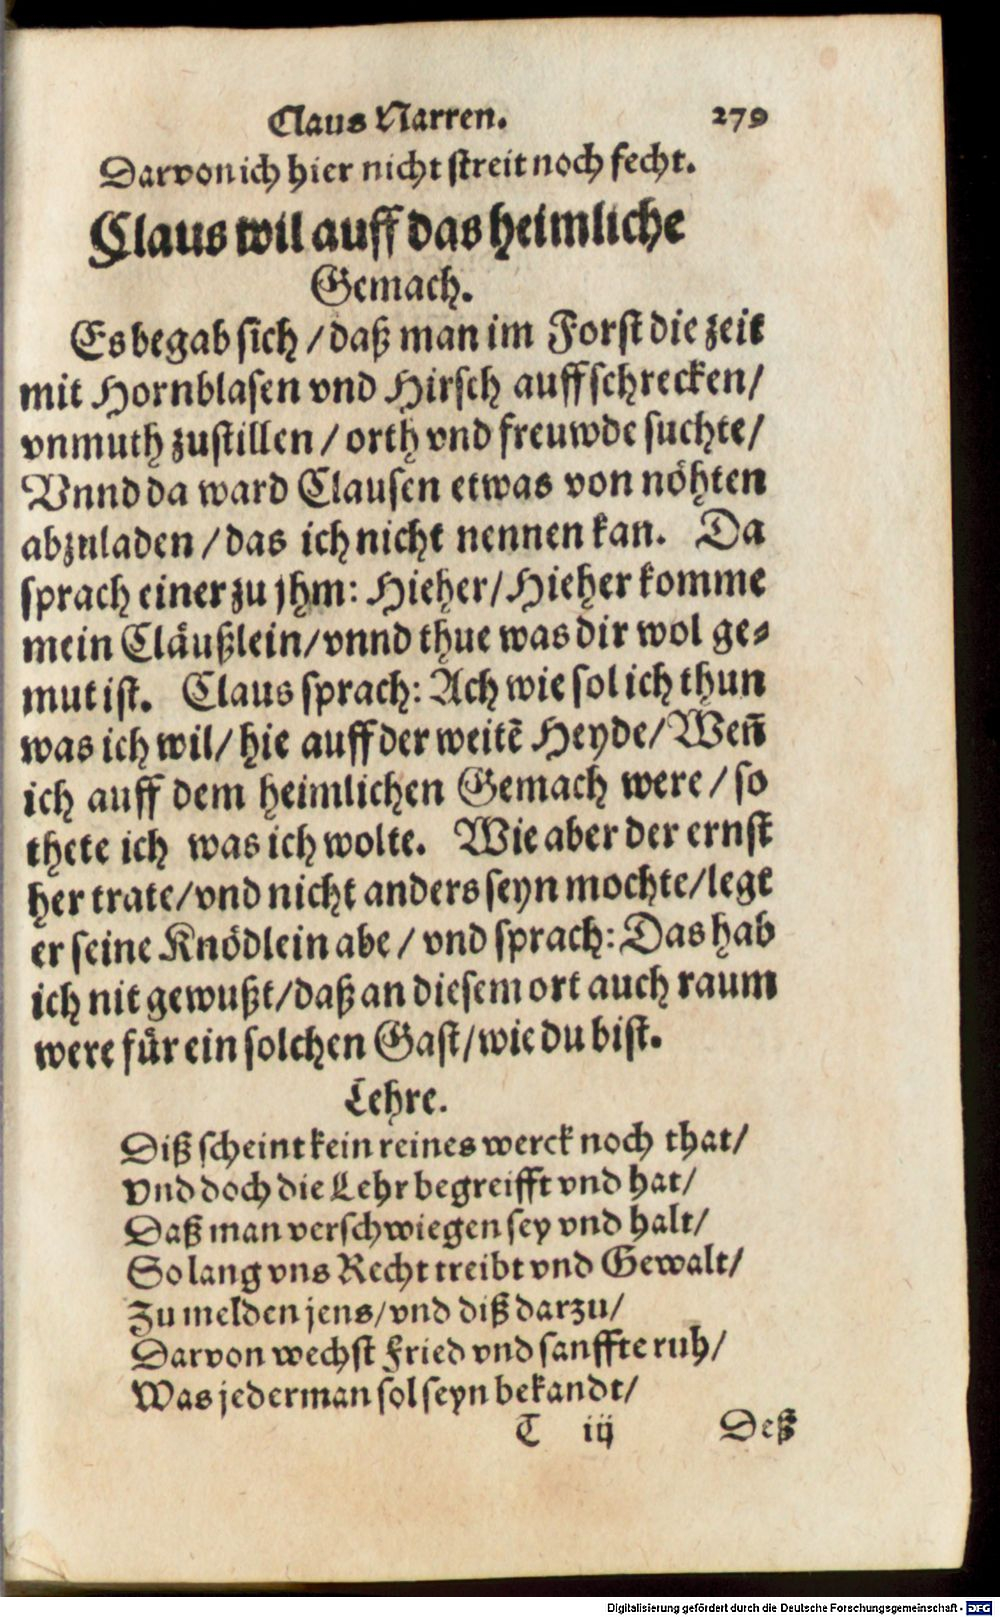 Claus Narren. 279
Darvon ich hier nicht streit noch fecht.
Claus wil auff das heimliche
Gemach.
Es begab sich / daß man im Forst die zeit
mit Hornblasen vnd Hirsch auffschrecken/
vnmuth zustillen / orth vnd freuwde suchte/
Vnnd da ward Clausen etwas von nöhten
abzuladen / das ich nicht nennen kan. Da
sprach einer zu jhm: Hieher/ Hieher komme
mein Cläußlein/ vnnd thue was dir wol ge-
mut ist. Claus sprach: Ach wie sol ich thun
was ich wil/ hie auff der weitẽ Heyde/ Weñ
ich auff dem heimlichen Gemach were / so
thete ich was ich wolte. Wie aber der ernst
her trate/ vnd nicht anders seyn mochte/ legt
er seine Knödlein abe / vnd sprach: Das hab
ich nit gewußt/ daß an diesem ort auch raum
were für ein solchen Gast/ wie du bist.
Lehre.
Diß scheint kein reines werck noch that/
Vnd doch die Lehr begreifft vnd hat/
Daß man verschwiegen sey vnd halt/
So lang vns Recht treibt vnd Gewalt/
Zu melden jens/ vnd diß darzu/
Darvon wechst Fried vnd sanffte ruh/
Was jederman sol seyn bekandt/
T iij Deß
Digitalisierung gefördert durch die Deutsche Forschungsgemeinschaft - DFG